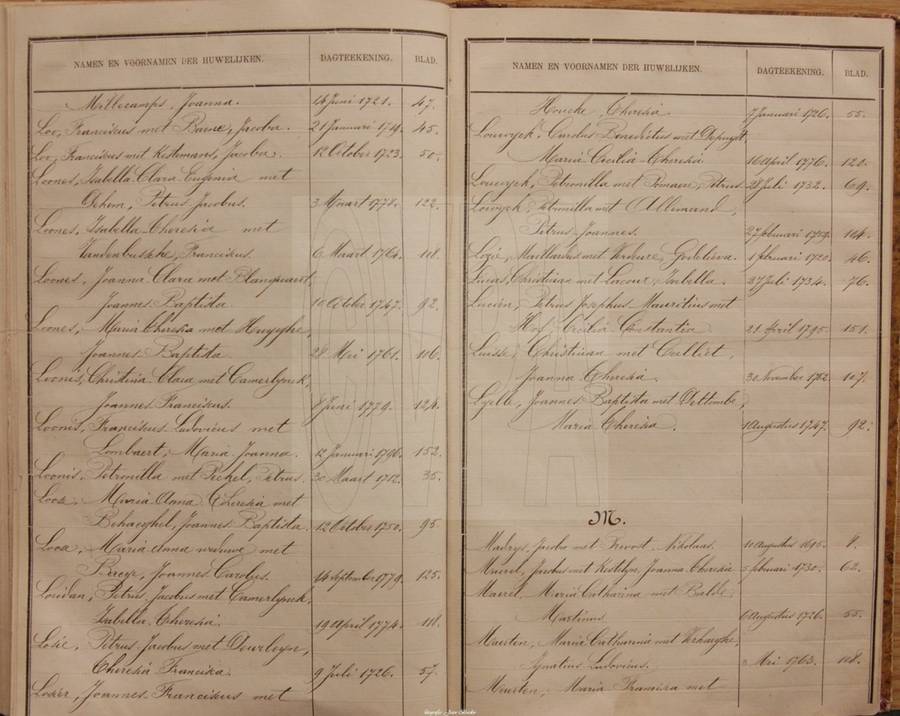 NAMEN EN VOORNAMEN DER HUWELIJKEN. DAGTEEKENING. BLAD.
Millecamps, Joanna. 14 Juni 1721. 47.
Loo, Franciscus met Barne, Jacoba. 21 Januari 1719. 45.
Loo, Franciscus met Jacoba. 12 October 1723. 50.
Loones, Isabella Clara Eugenia met
Ochem, Petrus Jacobus. 3 Maart 1778. 122.
Loones, Isabella Theresia met
Vandenbussche, Franciscus. 6 Maart 1764. 118.
Loones, Joanna Clara met Blanquaert,
Joannes Baptista 10 October 1747. 92.
Loones, Maria Theresia met Huyghe,
Joannes Baptista 28 Mei 1761. 116.
Loonis, Christina Clara met Camerlynck,
Joannes Franciscus. 8 Juni 1779. 124.
Loonis, Franciscus Ludovicus met
Lombaert, Maria Joanna. 12 Januari 1796. 152.
Loonis, Petronilla met Pickel, Petrus. 30 Maart 1712. 35.
Loos, Maria Anna Theresia met
Behaeghel, Joannes Baptista. 12 October 1750. 95
Loos, Maria Anna weduwe met
Joannes Carolus. 14 September 1779. 125.
Loridan, Petrus Jacobus met Camerlynck,
Isabella Theresia. 19 April 1774. 118.
Losie, Petrus Jacobus met Dourloyne,
Theresia Francisca. 9 Juli 1726. 57.
Losier, Joannes Franciscus met
NAMEN EN VOORNAMEN DER HUWELIJKEN. DAGTEEKENING. BLAD.
Houcke, Theresia 7 Januari 1726. 55.
Louwyck, Carolus Benedictus met Depuydt,
Maria Cecilia Theresia 16 April 1776. 120.
Louwyck, Petronilla met Pomaer, Petrus 28 Juli 1732. 69.
Lowyck, Petronilla met Allemand,
Petrus Joannes. 27 februari 104.
Lozie, Maillardus met Verheure, Godelieva. 1 februari 1720. 46.
Lucas, Christiaan met Lacour, Isabella. 27 Juli 1734. 76.
Lucien, Petrus Josephus Mauritius met
Hos, Cecilia Constantia 21 April 1795. 151.
Luisse, Christiaan met Cuilliet,
Joanna Theresia. 30 November 1752. 107.
Lyelle, Joannes Baptista met Deltombe,
Maria Theresia. 1 Augustus 1747. 92.
M.
Madrys, Jacoba met Prevost, Nikolaas. 10 Augustus 1695. 8.
Maerel, Jacobus met Kestelyn, Joanna Theresia 5 februari 1730. 62.
Maerel, Maria Catharina met Balde,
Martinus. 6 Augustus 1726. 55.
Maerten, Maria Catharina met Verhaeghe,
Ignatius Ludovicus. 2 Mei 1763. 118.
Maerten, Maria Francisca met